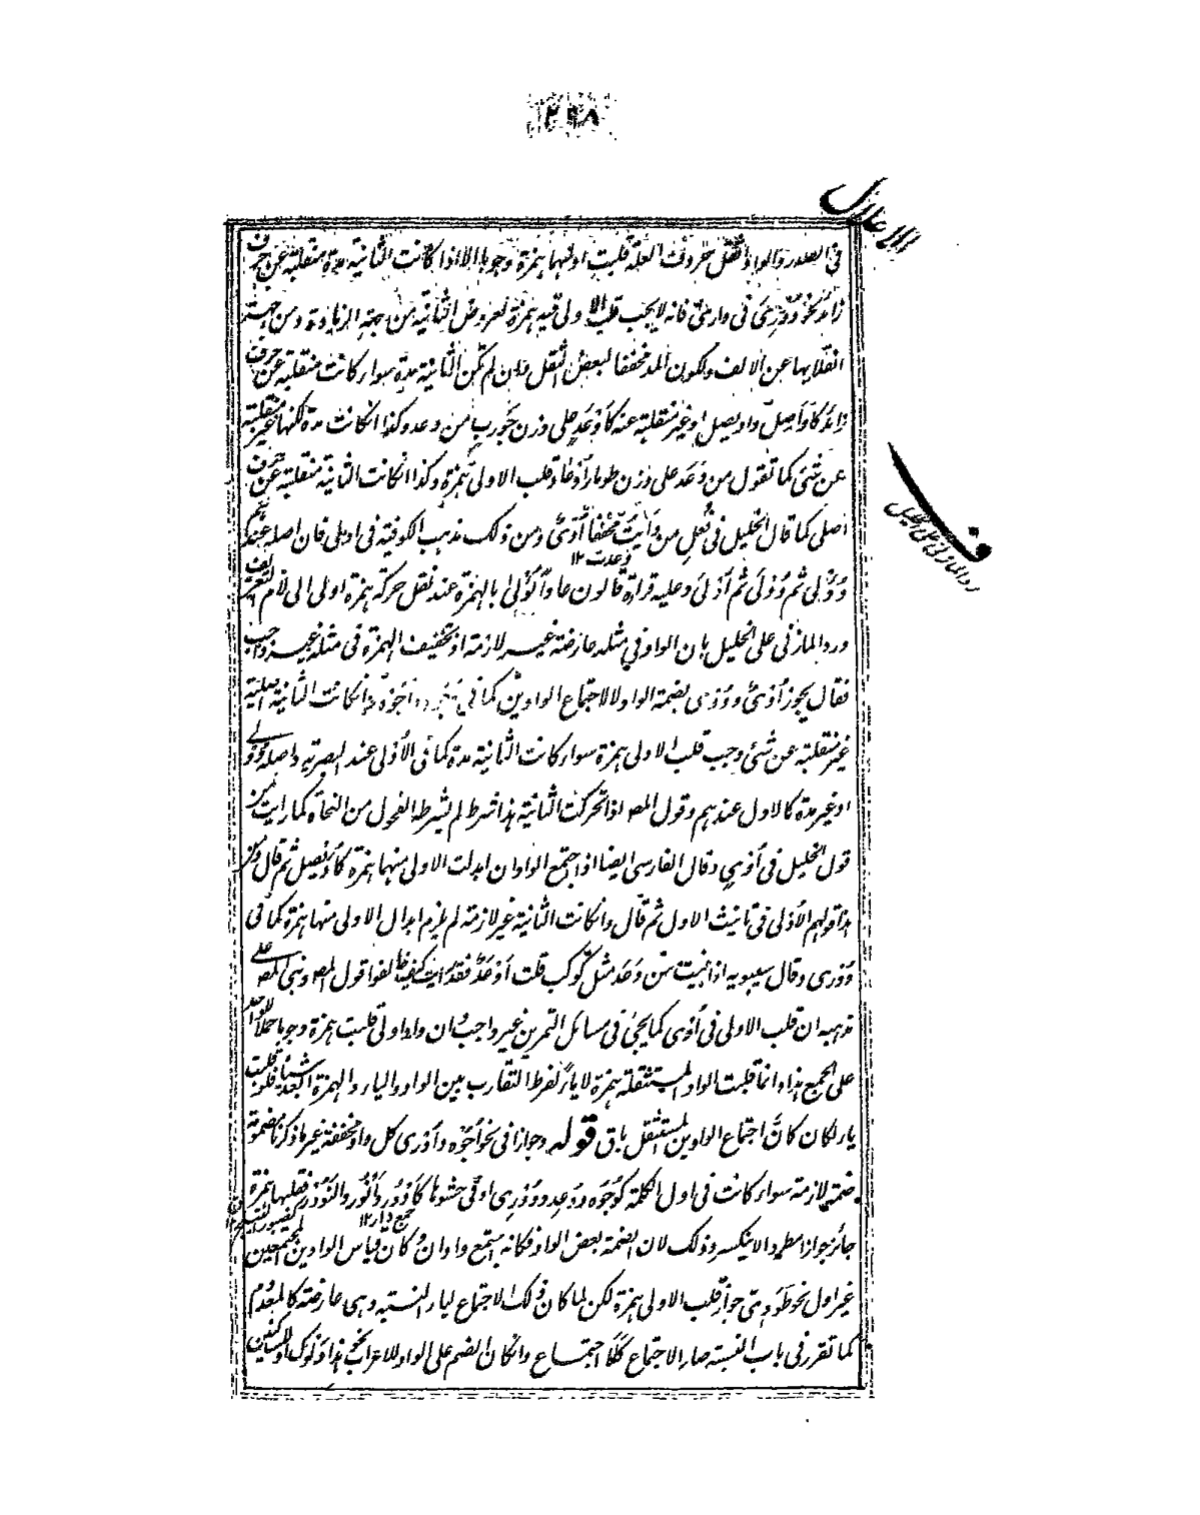 ٢٩٨
الاعلال
فى الصدر والواو اثقل حروف العلة قلبت اولهما همزة وجوبا الا اذا كانت الثانية مدة منقلبة عن حرف
زائد نحو وُورِىَ فى وارىٰ فانه لا يجب قلب الاولى فيه همزة لعروض الثانية من جهة الزيادة ومن جهة
انقلابها عن الالف ولكون المد مخففا لبعض الثقل وان لم تكن الثانية مدة سواء كانت منقلبة عن حرف
زائد كاَواصِل واويصل او غير منقلبة عنه كاَوْعَدٍ على وزن جَورب من وعد وكذا ان كانت مدة لكنها غير منقلبة
عن شئ كما تقول من وَعَد على وزن طومار اُوعاد قلب الاولى همزة وكذا ان كانت الثانية منقلبة عن حرف
اصلى كما قال الخليل فى فُعْلٍ من وَأَيْتُ مخففا اُوىٌ ومن ذلك مذهب الكوفية فى اولى فان اصله عندهم
وعدت ١٢
وُؤْلى ثم وُوْلَى ثم اُوْلىٰ وعليه قراءة قالون عاداً لُؤْلىٰ بالهمزة عند نقل حركة همزة اولى الى لام التعريف
ورد المازنى على الخليل بان الواو فى مثله عارضة غير لازمة اذ تخفيف الهمزة فى مثله غير واجب
فقال يجوز اُوىٌ ووُوىٌ بضمة الواو لا لاجتماع الواوين كما فى وُجُوه واُجوه وان كانت الثانية اصلية
غير منقلبة عن شئ وجب قلب الاولى همزة سواء كانت الثانية مدة كما فى الاُوْلى عند البصرية واصله وُوْلى
او غير مدة كالاول عندهم وقول المصـ اذا تحركت الثانية هذا شرط لم يشرطه الفحول من النحاة كما رايت من
قول الخليل فى اُوْىٍ وقال الفارسى ايضا اذا اجتمع الواوان ابدلت الاولى منهما همزة كاُوَيصل ثم قال ومن
هذا قولهم الاُوْلى فى تانيث الاول ثم قال وان كانت الثانية غير لازمة لم يلزم ابدال الاولى منهما همزة كما فى
وُوْرِى وقال سيبويه اذا بنيت من وَعَد مثل كَوْكب قلت اَوْعَدٌ فقد رايت كيف خالفوا قول المصـ وبنى المصـ على
مذهبه ان قلب الاولى فى اُوْىٍ كما يجئ فى مسائل التمرين غير واجب وان واو اولى قلبت همزة وجوبا حملا للواحد
على الجمع هذا وانما قلبت الواو المستثقلة همزة لا ياء لفرط التقارب بين الواو والياء والهمزة ابعد شيئا فلو قلبت
ياء لكان كانّ اجتماع الواوين المستثقل باق قوله وجوازا فى نحو اُجُوْه واُوْرى كل واو مخففة غير ما ذكرنا مضمومة
ضمة لازمة سواء كانت فى اول الكلمة كوُجُوه ووُعِد ووُوْرِى او فى حشوها كاَدْوُر واَنْؤُر والنَوُوْر فقلبها همزة
جمع دار ١٢
جائز جوازا مطردا لا ينكسر وذلك لان الضمة بعض الواو فكانه اجتمع واوان وكان قياس الواوين المجتمعين
غير اول نحو طَوَوِىّ جواز قلب الاولى همزة لكن لما كان ذلك الاجتماع لياء النسبة وهى عارضة كالمعدوم
كما تقرر فى باب النسبة صار الاجتماع كلا اجتماع وان كان الضم على الواو للاعراب نحو هذا دلوك او للساكنين
ف
رد المازنى على الخليل